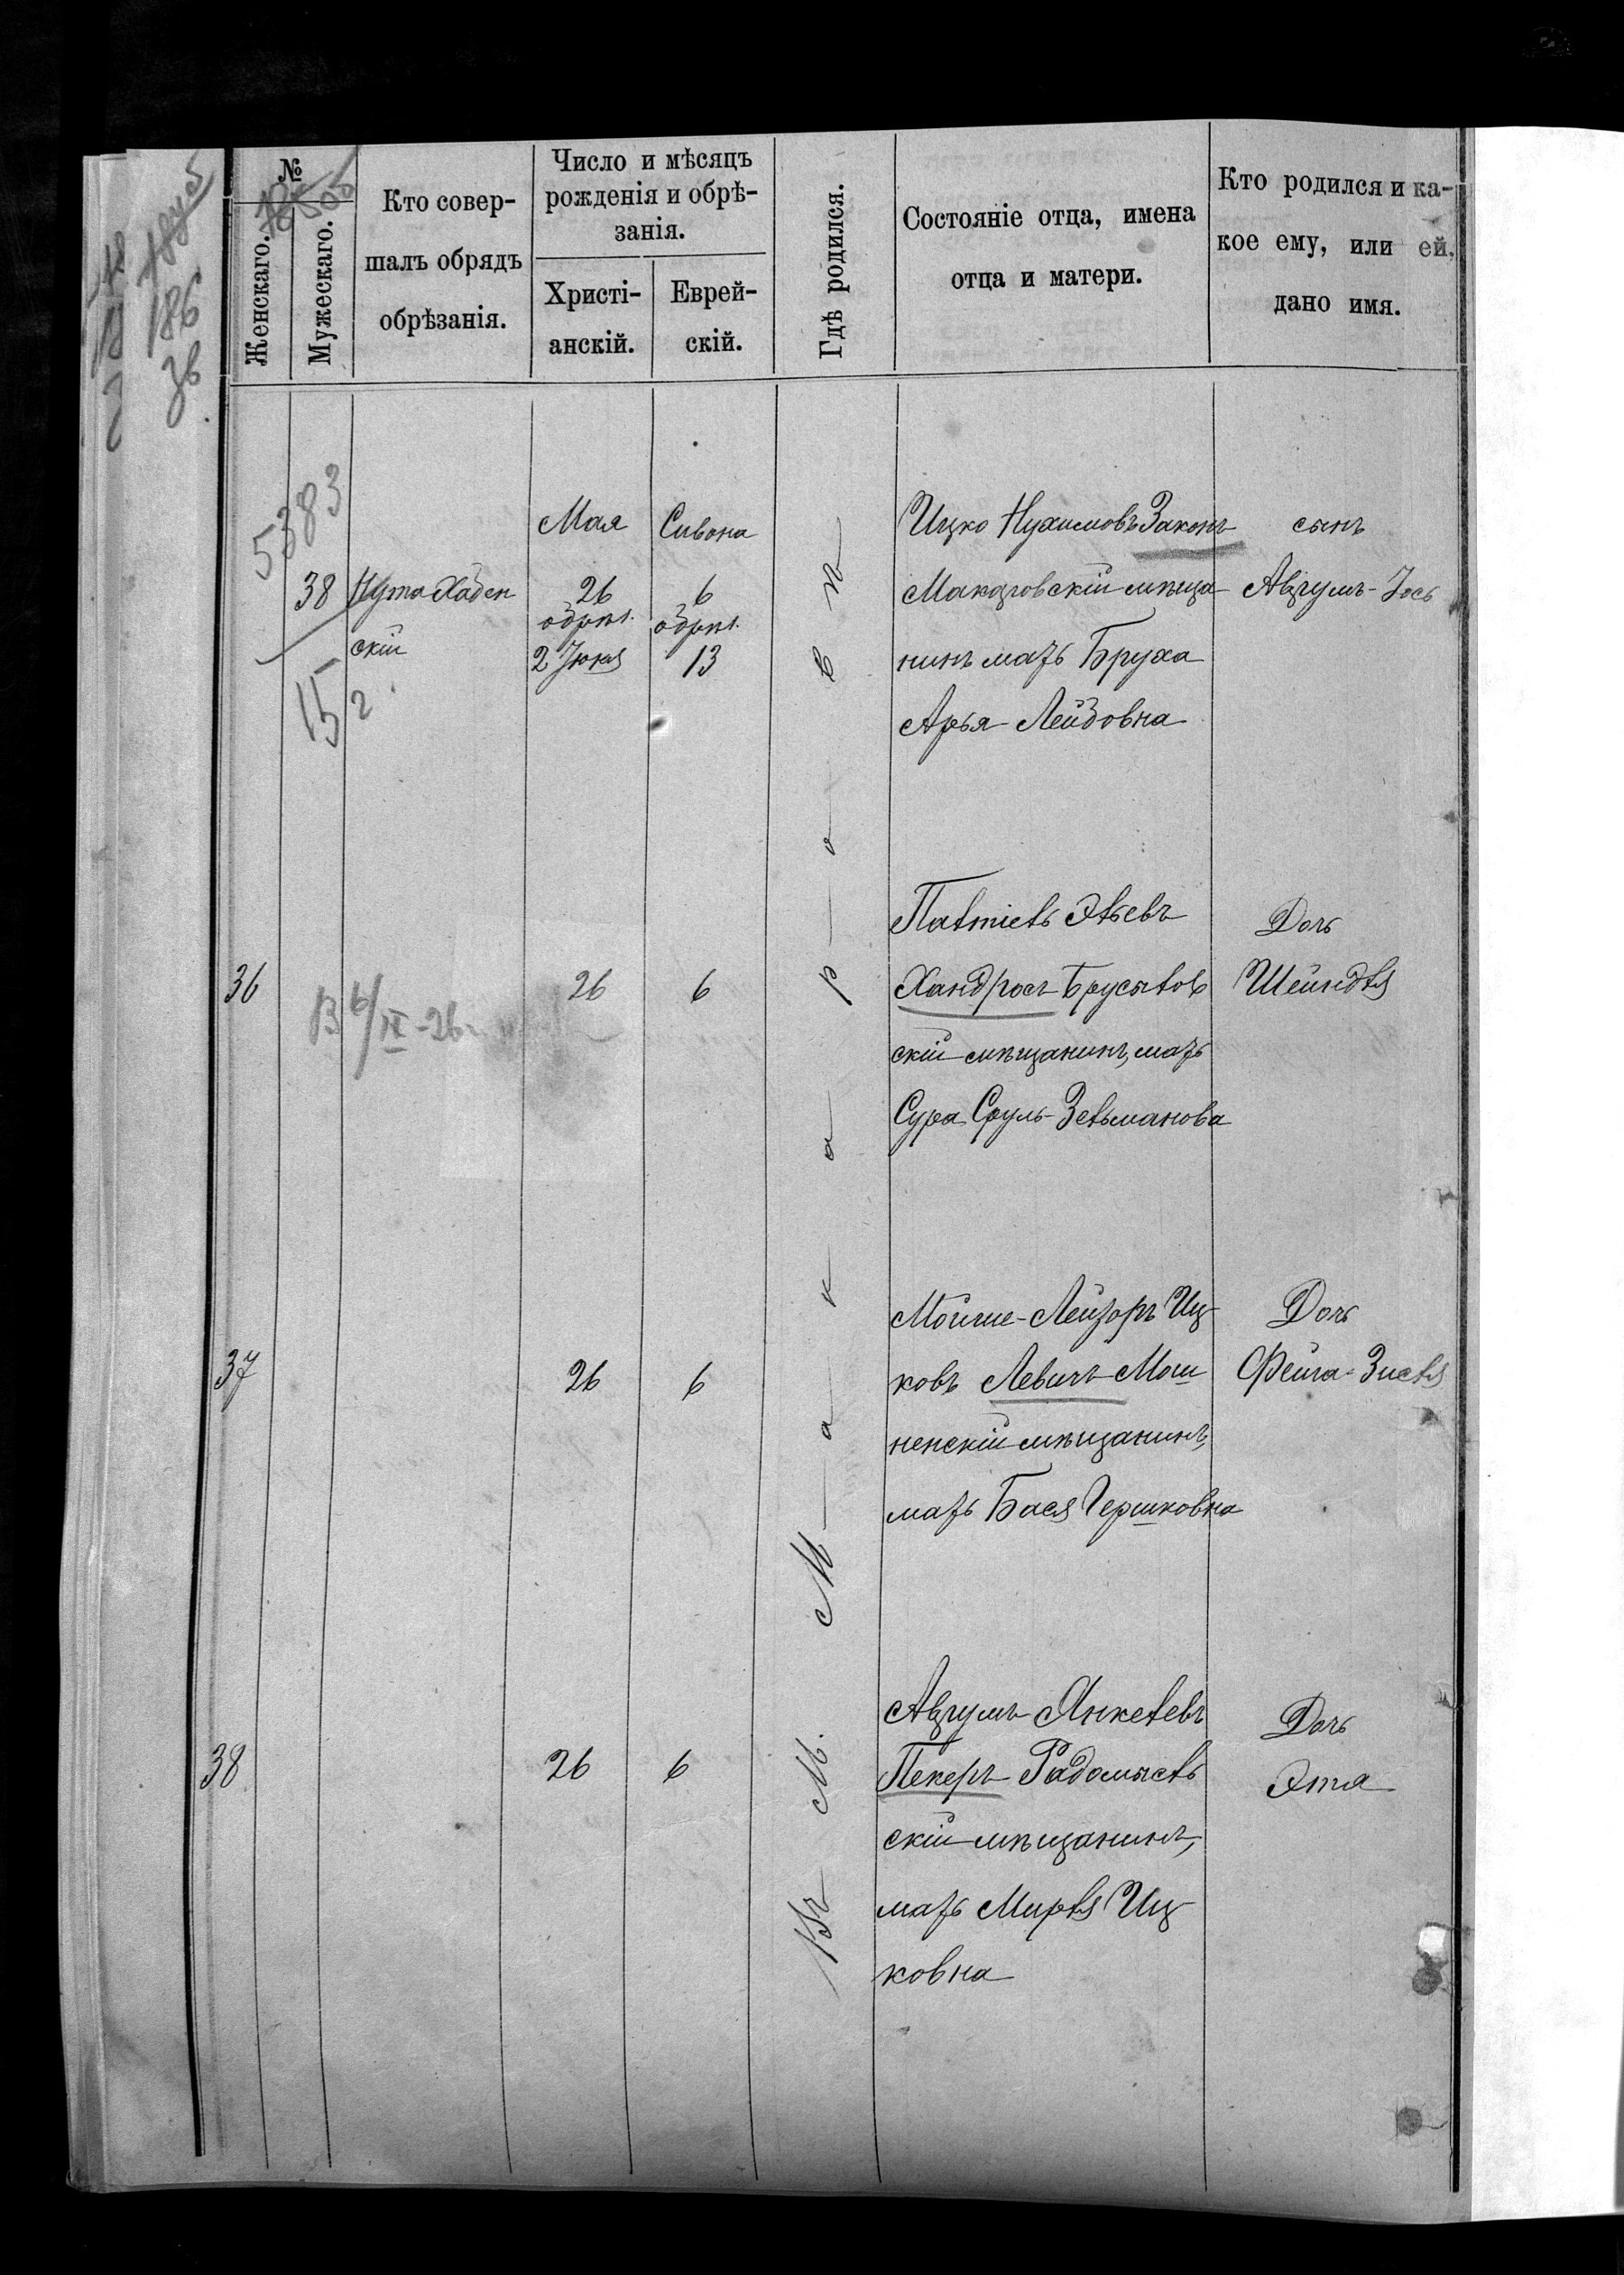 №
Женскаго.
Мужескаго.
Кто совер-
шалъ обрядъ
обрѣзанія.
Число и мѣсяцъ
рожденія и обрѣ-
занія.
Христі-
анскій.
Еврей-
скій.
Гдѣ родился.
Состояніе отца, имена
отца и матери.
Кто родился и ка-
кое ему, или ей,
дано имя.
186
36
5383
38
Нута Хаден
скій
15 2
Мая
26
обрѣз.
2 Іюня
Сивона
6
обрѣз.
13
Ицко Нухимовъ Законъ
Макаровскій мѣща
нинъ мать Бруха
Арья Лейбовна
сынъ
Аврумъ-Іось
36
В 6/IX-26г
26
6
Павтіель Эльевъ
Хандросъ Брусилов
скій мѣщанинъ, мать
Сура Сруль-Зельманова
Дочь
Шейндля
37
26
6
Мойше-Лейзоръ Иц
ковъ Левичъ Мош
ненскій мѣщанинъ,
мать Бася Гершковна
Дочь
Фейга-Зисля
38
26
6
Аврумъ Янкелевъ
Пекеръ Радомысль
скій мѣщанинъ,
мать Мирля Иц
ковна
Дочь
Эта
Въ М. Макаровѣ